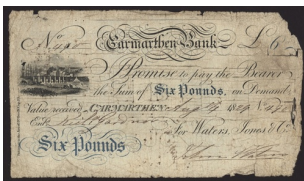 No Carmarthen Bank £6
I Promise to pay the Bearer
the Sum of Six Pounds, on Demand
Value received CARMARTHEN Aug
Entd For Waters, Jones & Co.
Six Pounds